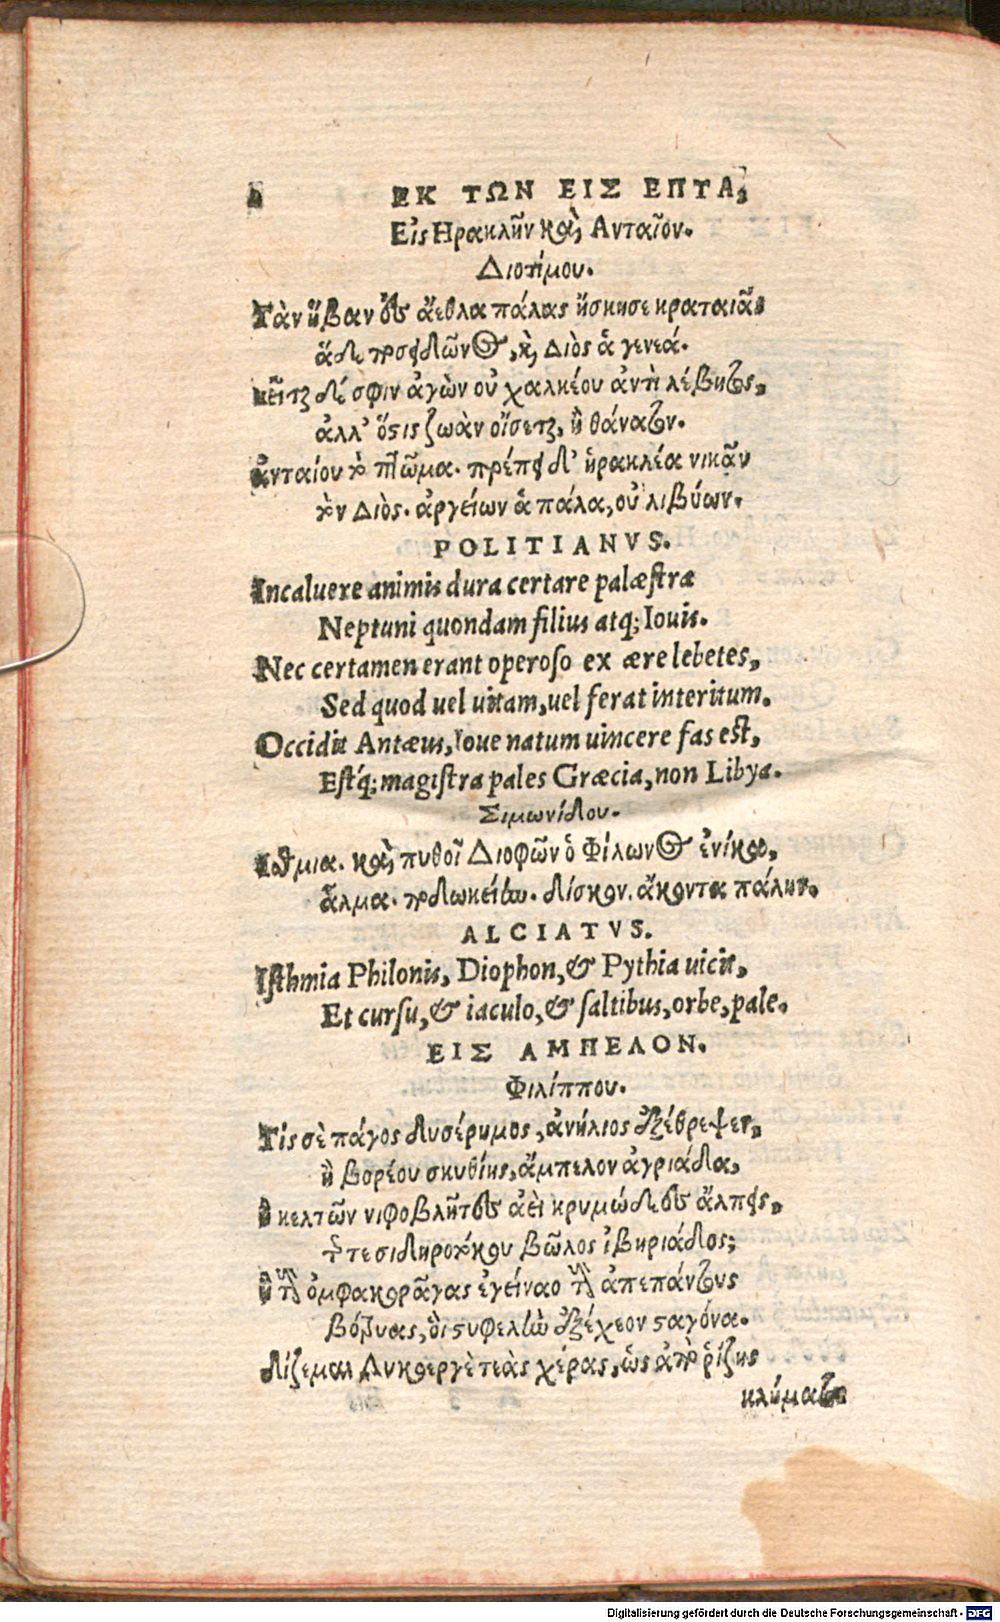 ΕΚ ΤΩΝ ΕΙΣ ΕΠΤΑ,
Εἰς Ηρακλῆν καὶ Ανταῖον.
Διοτίμου.
Τὰν ἥβαν ἐς ἄεθλα πάλας ἤσκησε κραταιᾶς
ἅδε ποσειδῶνος, καὶ Διὸς ἁ γενεά.
κεῖται δέ σφιν ἀγὼν οὐ χαλκέου ἀντὶ λέβητος,
ἀλλ' ὅστις ζωὰν οἴσεται, ἢ θάνατον.
ἀνταίου τὸ πτῶμα. πρέπει δ' ἡρακλέα νικᾷν
τὸν Διὸς. ἀργείων ἁ πάλα, οὐ λιβύων.
POLITIANVS.
Incaluere animis dura certare palæstra
Neptuni quondam filius atq; Iouis.
Nec certamen erant operoso ex ære lebetes,
Sed quod uel uitam, uel ferat interitum.
Occidit Antæus, Ioue natum uincere fas est,
Estq́; magistra pales Græcia, non Libya.
Σιμωνίδου.
Ισθμια. καὶ πυθοῖ Διοφῶν ὁ Φίλωνος ἐνίκα,
ἅλμα. ποδωκείην. δίσκον. ἄκοντα πάλην.
ALCIATVS.
Isthmia Philonis, Diophon, & Pythia uicit,
Et cursu, & iaculo, & saltibus, orbe, pale.
ΕΙΣ ΑΜΠΕΛΟΝ.
Φιλίππου.
Τίς σὲ πάγος δυσέρημος, ἀνήλιος ἐξέθρεψεν,
ἢ βορέου σκυθίης, ἄμπελον ἀγριάδα,
ἢ κελτῶν νιφοβλῆτες ἀεὶ κρυμώδεες ἄλπεις,
τῆς τε σιδηροτόκου βῶλος ἰβηριάδος;
ἢ τὰς ὀμφακορᾶγας ἐγείναο τὰς ἀπεπάντους
βότρυας, οἳ στυφελὴν ἐξέχεον σταγόνα.
δίζεμαι Λυκόεργὲ τεὰς χέρας, ὡς ἀπὸ ῥίζης
κλήματος